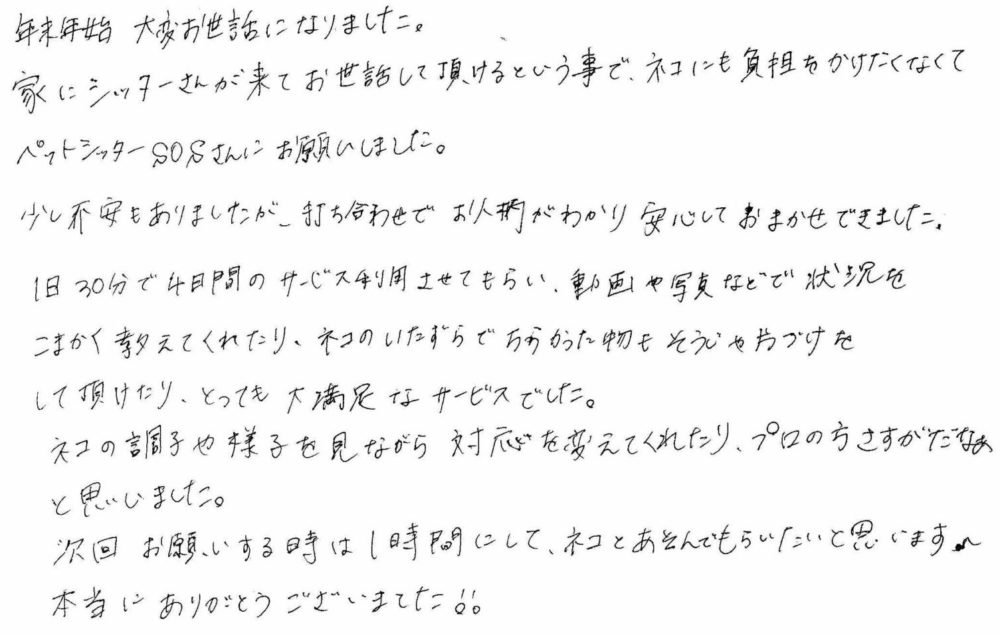 年末年始 大変お世話になりました。
家にシッターさんが来てお世話して頂けるという事で、ネコにも負担をかけたくなくて
ペットシッターSOSさんにお願いしました。
少し不安もありましたが、打ち合わせで お人柄がわかり 安心しておまかせできました。
1日30分で4日間のサービス利用させてもらい、動画や写真などで状況を
こまかく教えてくれたり、ネコのいたずらでちらかった物もそうじや片づけを
して頂けたり、とっても大満足なサービスでした。
ネコの調子や様子を見ながら対応を変えてくれたり、プロの方さすがだなぁ
と思いました。
次回 お願いする時は1時間にして、ネコとあそんでもらいたいと思います〜
本当に ありがとうございました!!